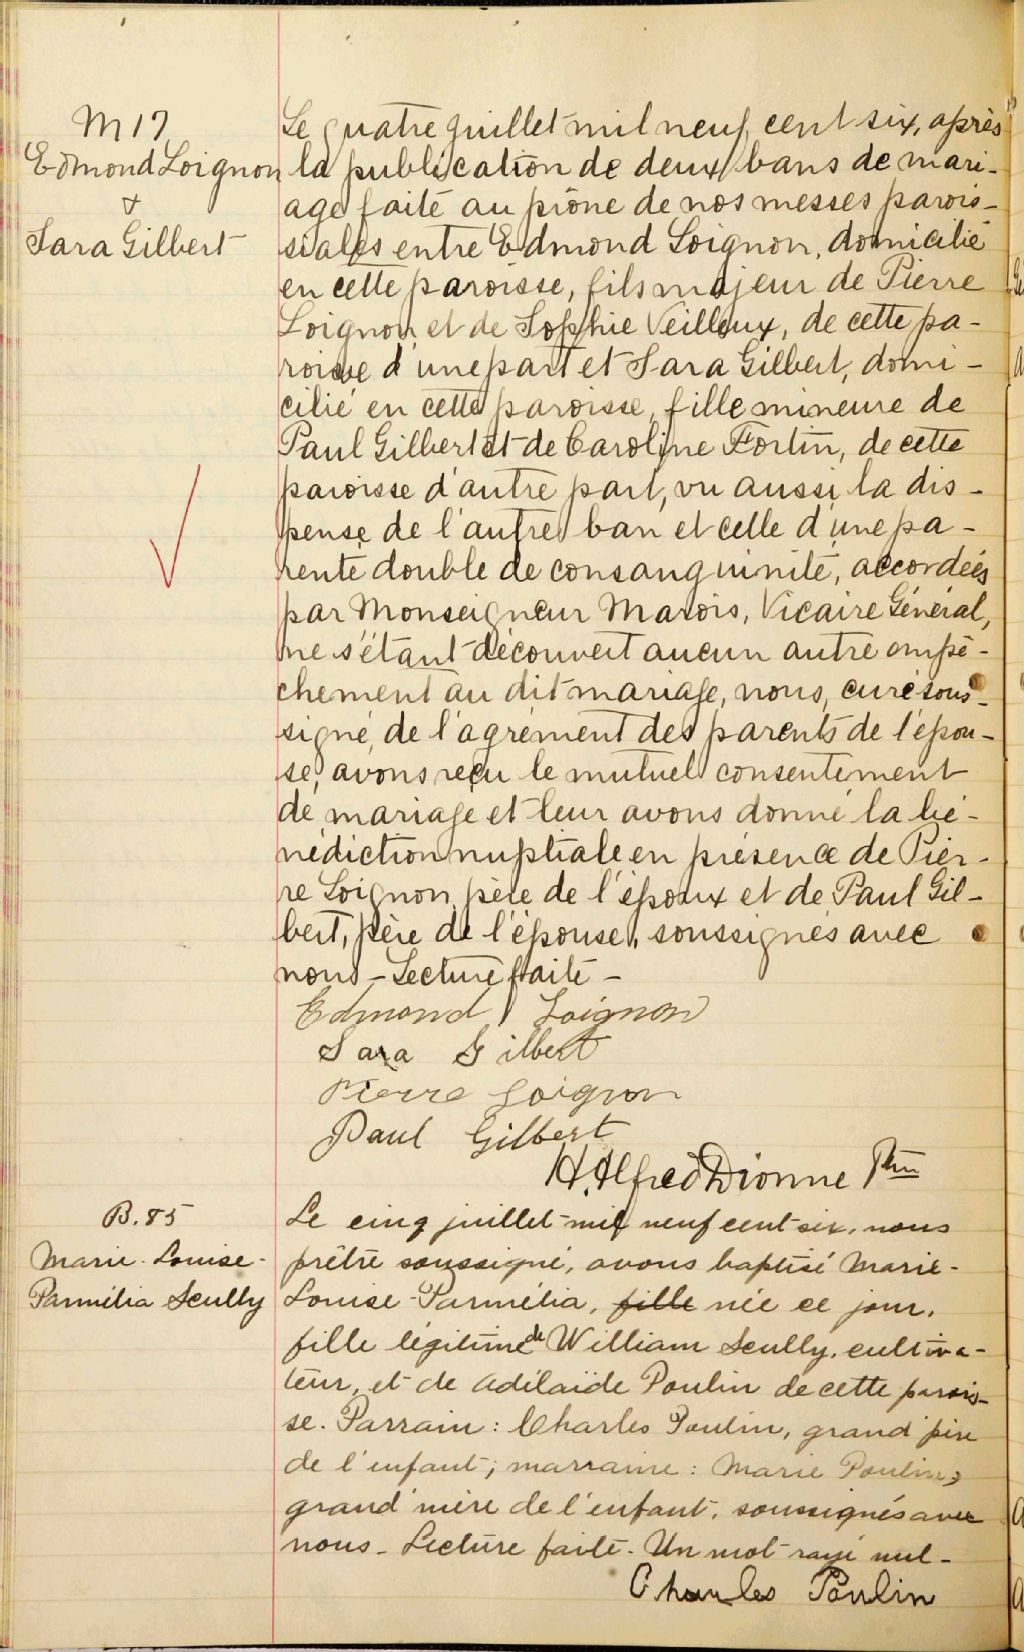 M 17
Edmond Loignon
&
Sara Gilbert
Le quatre juillet mil neuf cent six, après
la publication de deux bans de mari-
age faite au prône de nos messes parois-
siales entre Edmond Loignon, domicilié
en cette paroisse, fils majeur de Pierre
Loignon et de Sophie Veilleux, de cette pa-
roisse d'une part et Sara Gilbert, domi-
cilié en cette paroisse, fille mineure de
Paul Gilbert et de Caroline Fortin, de cette
paroisse d'autre part, vu aussi la dis-
pense de l'autre ban et celle d'une pa-
renté double de consanguinité, accordées
par Monseigneur Marois, Vicaire Général,
ne s'étant découvert aucun autre empê-
chement au dit mariage, nous, curé sous-
signé, de l'agrément des parents de l'épou-
se, avons reçu le mutuel consentement
de mariage et leur avons donné la bé-
nédiction nuptiale en présence de Pier-
re Loignon père de l'époux et de Paul Gil-
bert, père de l'épouse, soussignés avec
nous - Lecture faite -
Edmond Loignon
Sara Gilbert
Pierre Loignon
Paul Gilbert
H. Alfred Dionne Ptre
B. 85
Marie-Louise-
Parmélia Scully
Le cinq juillet mil neuf cent six, nous
prêtre soussigné, avons baptisé Marie-
Louise-Parmélia, fille née ce jour,
fille légitime de William Scully, cultiva-
teur, et de Adélaïde Poulin de cette parois-
se. Parrain : Charles Poulin, grand'père
de l'enfant ; marraine : Marie Poulin,
grand'mère de l'enfant, soussignés avec
nous - Lecture faite - Un mot rayé nul -
Charles Poulin